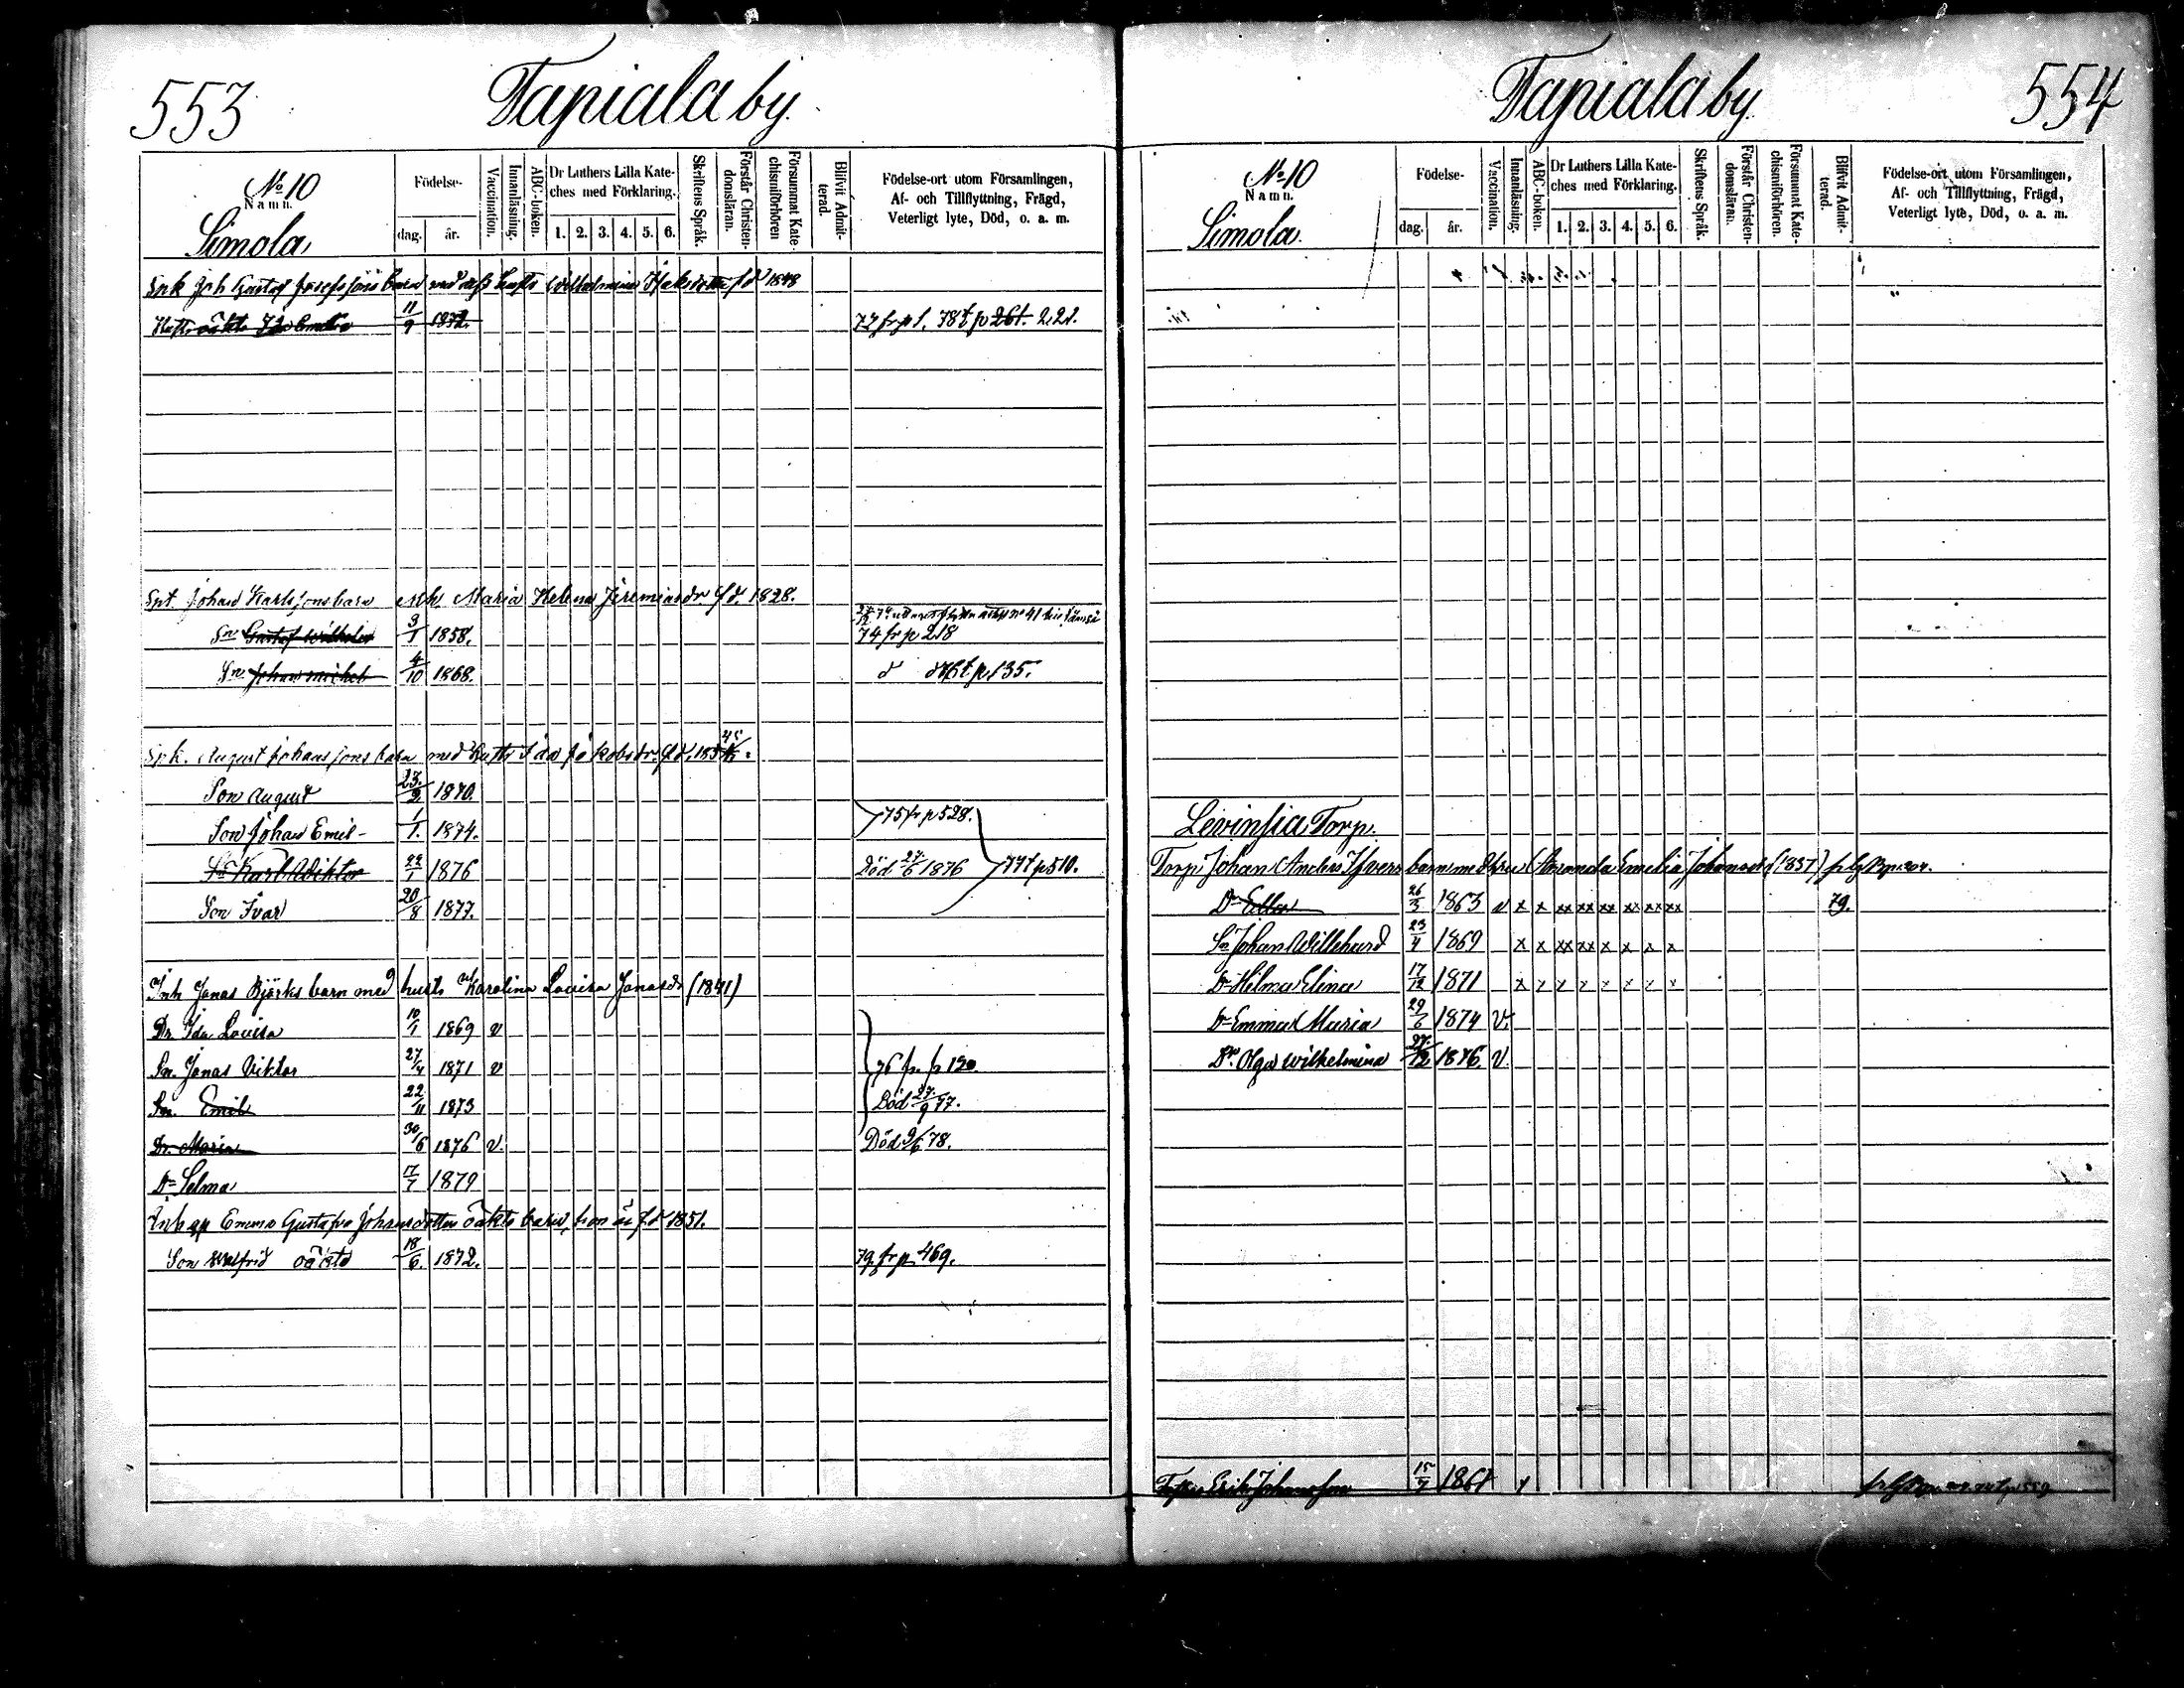 553 Tapiala by.
No 10
Namn.
Simola
Födelse-
dag. år.
Vaccination.
Innanläsning.
ABC-boken.
Dr Luthers Lilla Kate-
ches med Förklaring.
1. 2. 3. 4. 5. 6.
Skriftens Språk.
Förstår Christen-
domsläran.
Försummat Kate-
chismiförhören
Blifvit Admit-
terad.
Födelse-ort utom Församlingen,
Af- och Tillflyttning, Frägd,
Veterligt lyte, Död, o. a. m.
Spk Joh Gustaf Josefssons barn med dess hustr Wilhelmina Isaksdotter f d 1848
oäkta 11/9 1872. 77 fr p 1. 78 t p 261. 221.
Johan Karlssons barn Maria Helena Jeremiasdr f d. 1828.
Sn Gustaf Wilhelm 3/1 1858. 74 fr p 218
Sn Johan Michel 4/10 1868. d t p. 135.
Spk. August Johanssons barn med hustr Ida Jakobsdr. f d. 45
Son August 23/2 1870.
Son Johan Emil 1/1. 1874. 75 fr p 528.
Sn Karl Wiktor 22/1 1876 Död 27/6 1876 77 t p 510.
Son Ivar 20/8 1877.
Inh Jonas Björks barn med hustr Karolina Lovisa Jonasdr (1841)
Dr. Ida Lovisa 10/1 1869 v
Sn. Jonas Viktor 27/4 1871 v 76 fr. p 190.
Sn. Emil 22/11 1873 Död 27/9 77.
Dr. Maria 30/6 1876 v. Död 9/6 78.
Dr Selma 17/7 1879
Emma Gustafva Johansdotters oäkta barn, hon är f. d 1851.
Son Walfrid oäkta 18/6. 1872. 79 fr p 469.
Tapiala by. 554
No 10
Namn.
Simola.
Födelse-
dag. år.
Vaccination.
Innanläsning.
ABC-boken.
Dr Luthers Lilla Kate-
ches med Förklaring.
1. 2. 3. 4. 5. 6.
Skriftens Språk.
Förstår Christen-
domsläran.
Försummat Kate-
chismiförhören.
Blifvit Admit-
terad.
Födelse-ort utom Församlingen,
Af- och Tillflyttning, Frägd,
Veterligt lyte, Död, o. a. m.
Levinsia Torp.
Torp Johan Anders Isfvers barn med hru Amanda Emelia Johansdr (1837)
Dr Ella 26/5 1863 v x x xx xx xx xx xx xx 79.
Sn Johan Willehard 23/4 1869 x x xx xx x x x x
Dr Hilma Elina 17/12 1871 x x x x x x x x
Dr Emma Maria 29/6 1874 v.
Dr. Olga Wilhelmina 27/12 1876. v.
Erik Johansson 15/7 1861 x